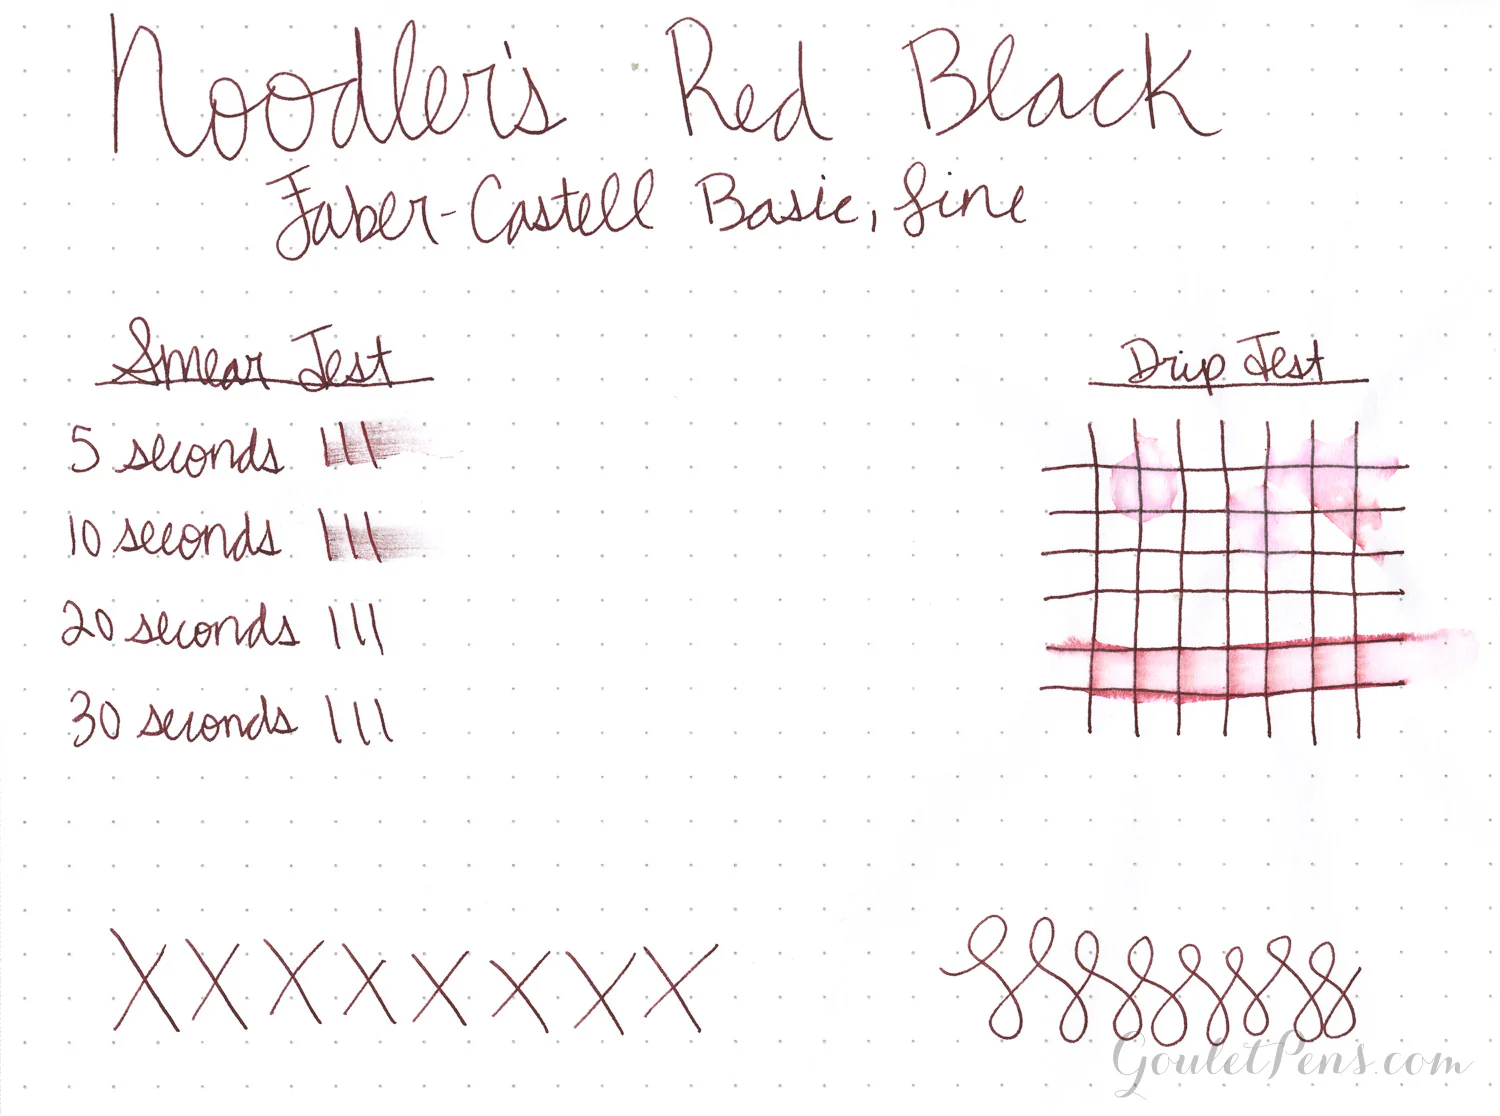 Noodler's Red Black
Faber-Castell Basic, fine
Smear Test
5 seconds
10 seconds
20 seconds
30 seconds
Drip Test
XXXXXXXX
GouletPens.com